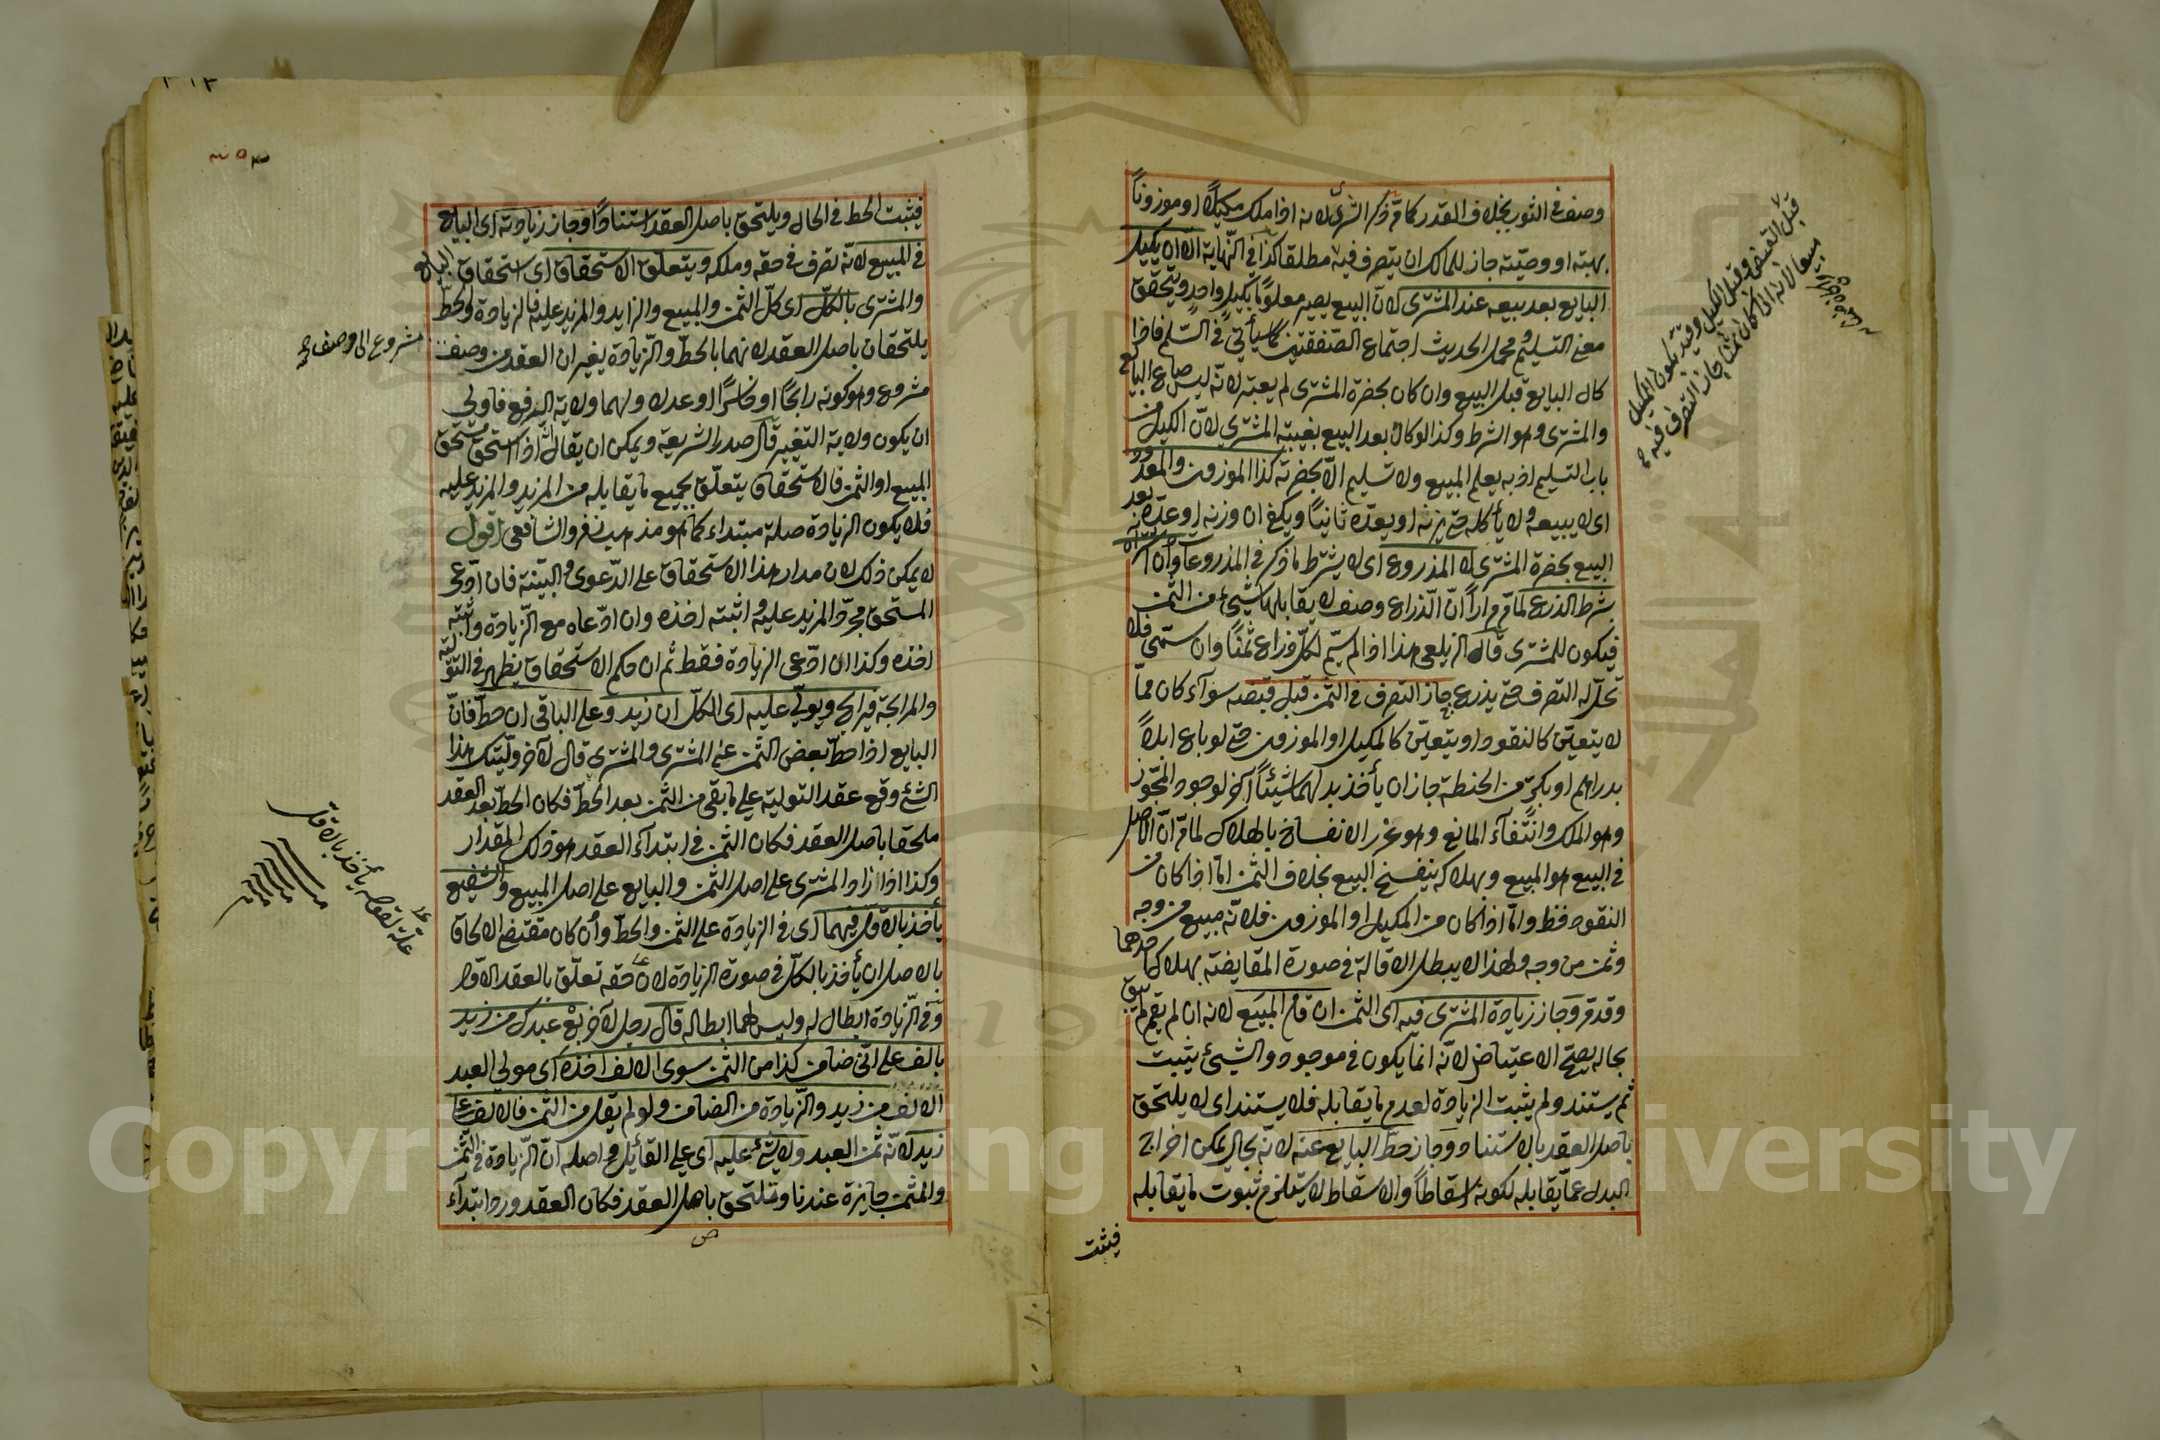 وصف في الثوب بخلاف القدر كما مر ذكر الشرى لانه اذا ملك مكيلا او موزونا
بهبته او وصيته جاز للمالك ان يتصرف فيه مطلقا كذا في النهاية الا ان يكيل
البايع بعد بيعه عند المشترى لان المبيع يصير معلوما بكيل واحد ويتحقق
معنى التسليم ومحمل الحديث اجتماع الصفقتين كما سيأتي في السلم فاذا
كال البايع قبل البيع وان كان بحضرة المشترى لم يعتبر لانه ليس صاع البائع
والمشترى وهو الشرط وكذا لو كال بعد البيع بغيبة المشترى لان الكيل من
باب التسليم اذ به يعلم المبيع ولا تسليم الا بحضرته كذا الموزون والمعدود
اى لا يبيعه ولا يأكله حتى يزنه او يعده ثانيا ويكفى ان وزنه او عده بعد
البيع بحضرة المشترى لا المذروع اى لا يشترط ما ذكر في المذروعات وان اشتراه
بشرط الذرع لما مر مرارا ان الذراع وصف لا يقابلها شيء من الثمن
فيكون للمشترى قال الزيلعى هذا اذا لم يسم لكل ذراع ثمنا وان سمى فلا
تحل له التصرف حتى يذرع جاز التصرف في الثمن قبل قبضه سواء كان مما
لا يتعين كالنقود او يتعين كالمكيل او الموزون حتى لو باع ابلا
بدراهم او بكر من الحنطة جاز ان يأخذ بدلهما شيئا آخر لوجود المجوز
وهو الملك وانتفاء المانع وهو غرر الانفساخ بالهلاك لما مر ان الاصل
في البيع هو المبيع وبهلاكه ينفسخ البيع بخلاف الثمن اما اذا كان من
النقود فظ واما اذا كان من المكيل او الموزون فلانه مبيع من وجه
وثمن من وجه ولهذا لا يبطل الاقالة في صورة المقايضة بهلاك احدهما
وقد مر وجاز زيادة المشترى فيه اى الثمن ان قام المبيع لانه ان لم يقم لم يبق
بحاله يصح الاعتياض لانه انما يكون في موجود والشيئ يثبت
ثم يستند ولم يثبت الزيادة لعدم ما يقابله فلا يستند اى لا يلتحق
باصل العقد بالاستناد وجاز حط البايع عنه لانه بحال يمكن اخراج
البدل عما يقابله لكونه اسقاطا والاسقاط لا يستلزم ثبوت ما يقابله
فيثبت
قبل القبض وقبل الكيل وقيد بكون المكيل
مبيعا لانه اى كان ثمنا جاز التصرف فيه
فيثبت الحط في الحال ويلتحق باصل العقد استنادا وجاز زيادته اى البايع
في المبيع لانه تصرف في حقه وملكه ويتعلق الاستحقاق اى استحقاق البايع
والمشترى بالكل اى كل الثمن والمبيع والزايد والمزيد عليه فالزيادة والحط
يلتحقان باصل العقد لانهما بالحط والزيادة يغيران العقد من وصف
مشروع وهو كونه رابحا او خاسرا او عدلا ولهما ولاية الرفع فاولى
ان يكون ولاية التغيير قال صدر الشريعة ويمكن ان يقال اذا استحق مستحق
المبيع او الثمن فالاستحقاق يتعلق بجميع ما يقابله من المزيد والمزيد عليه
فلا يكون الزيادة صلة مبتداء كما هو مذهب زفر والشافعى اقول
لا يمكن ذلك لان مدار هذا الاستحقاق على الدعوى والبينة فان ادعى
المستحق مجرد المزيد عليه واثبته اخذه وان ادعاه مع الزيادة واثبته
اخذه وكذا ان ادعى الزيادة فقط ثم ان حكم الاستحقاق يظهر في التولية
والمرابحة فيرابح ويولى عليه اى الكل ان زيد وعلى الباقى ان حط فان
البايع اذا حط بعض الثمن عن المشترى والمشترى قال لآخر وليتك هذا
الشئ وقع عقد التولية على ما بقى من الثمن بعد الحط فكان الحط بعد العقد
ملحقا باصل العقد فكان الثمن في ابتداء العقد هو ذلك المقدار
وكذا اذا زاد المشترى على اصل الثمن والبايع على اصل المبيع والشفيع
يأخذ بالاقل فيهما اى في الزيادة على الثمن والحط وان كان مقتضى الالحاق
بالاصل ان يأخذ بالكل في صورة الزيادة لان حقه تعلق بالعقد الاول
وفي الزيادة ابطال له وليس لهما ابطاله قال رجل لآخر بع عبدك من زيد
بالف على انى ضامن كذا من الثمن سوى الالف اخذه اى مولى العبد
الالف من زيد والزيادة من الضامن ولو لم يقل من الثمن فالالف على
زيد لانه ثمن العبد ولا شئ عليه اى على القائل واصله ان الزيادة في الثمن
والمثمن جايزة عندنا وتلتحق باصل العقد فكان العقد ورد ابتداء
مشروع الى وصف
علة لقوله يأخذ بالاقل
Copyright King Saud University